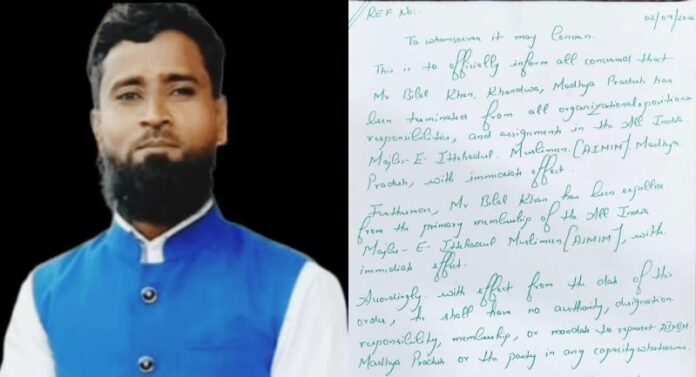 REF No:-
02/09/202
To whomsoever it may Concern.
This is to officially inform all concerned that
Mr Bilal Khan, Khandwa, Madhya Pradesh has
been terminated from all organizational positions
responsibilities, and assignments in the All India
Majlis-E-Ittehadul Muslimeen [AIMIM] Madhya
Pradesh, with immediate effect.
Furthermore, Mr Bilal Khan has been expelled
from the primary membership of the All India
Majlis-E-Ittehadul Muslimeen [AIMIM], with
immediate effect.
Accordingly with effect from the date of this
order, he shall have no authority, designation
responsibility, membership, or mandate to represent AIMIM
Madhya Pradesh or the party in any capacity whatsoever.